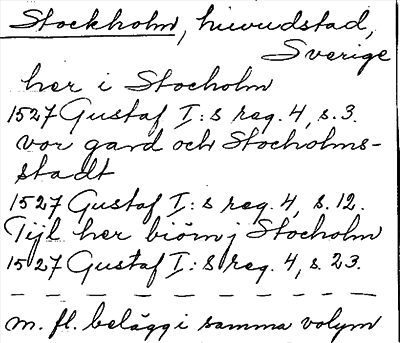 Stockholm, huvudstad,
Sverige
her i Stocholm
1527 Gustaf I:s reg. 4, s. 3.
vor gard och Stocholms-
stadt
1527 Gustaf I:s reg. 4, s. 12.
Tijl her biöm j Stocholm
1527 Gustaf I:s reg. 4, s. 23.
— — — — — — — — —
m. fl. belägg i samma volym